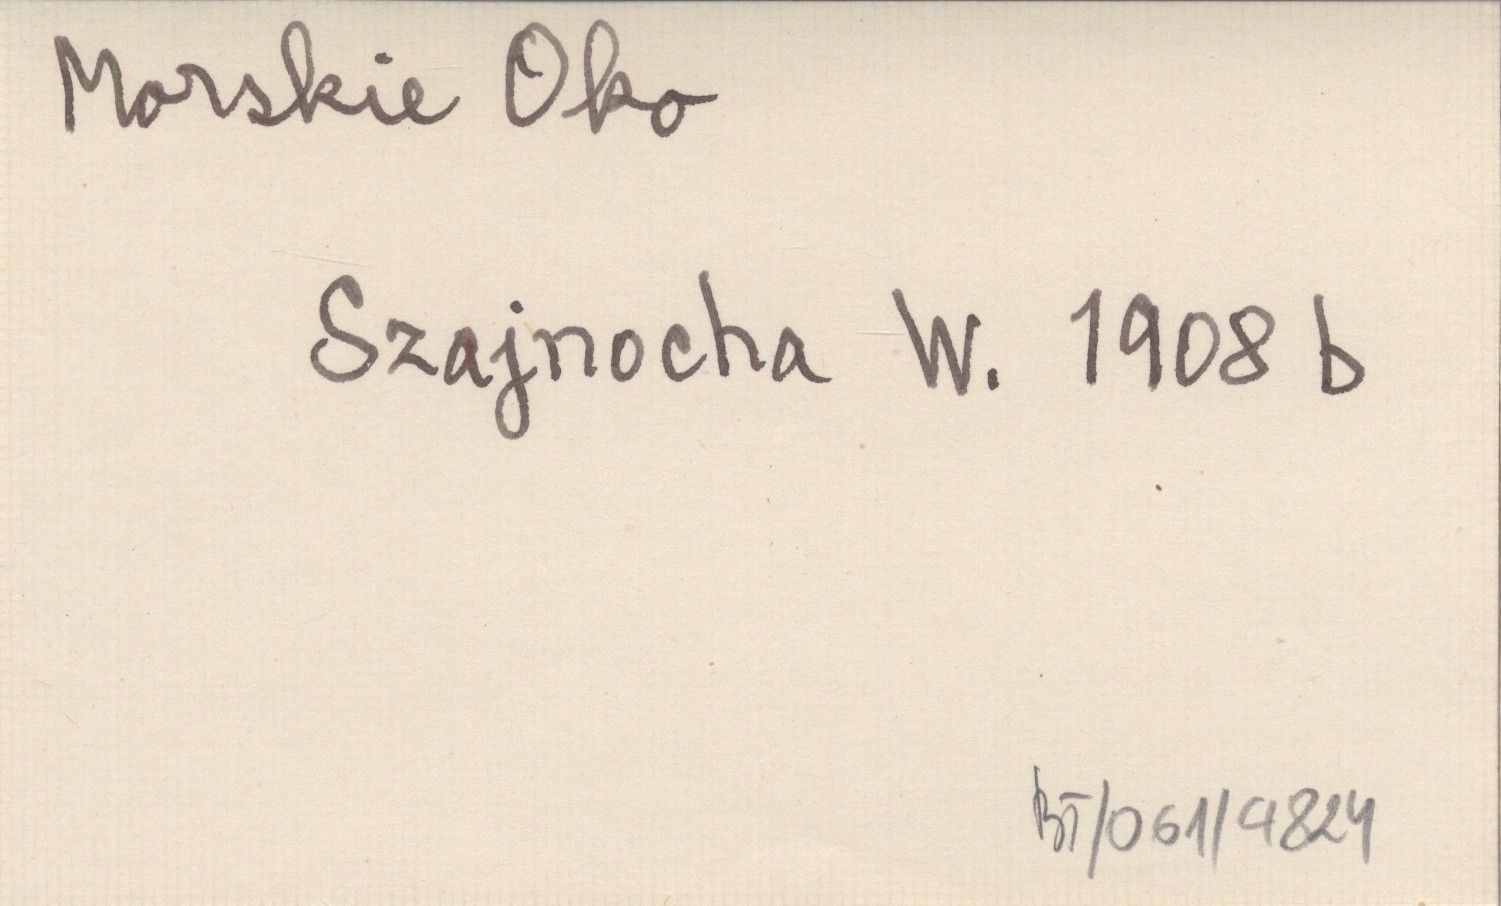 Morskie Oko
Szajnocha W. 1908 b
BT/061/9824